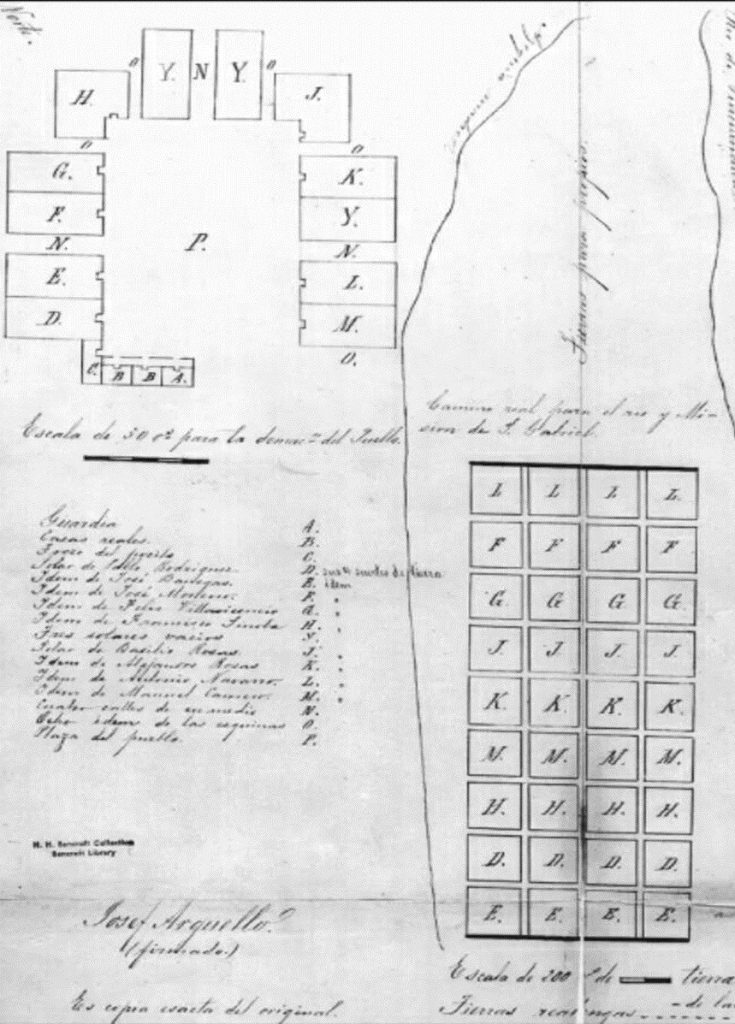 Y. N Y.
O O
H. J.
O O
G. K.
F. P. Y.
N. N.
E. L.
D. M.
O.
C. B B A.
Escala de 50 vs para la demarn del Pueblo.
Tierras para propios.
Camino real para el rio y Mi-
sion de S. Gabriel.
Guardia A.
Casas reales. B.
C.
Solar de Pablo Rodriguez. D. sus 4 suertes de tierra
Idem de José Banegas. E. idem
Idem de José Moreno. F. "
Idem de Felix Villavicencio G. "
Idem de Francisco H. "
Tres solares vacios Y.
Solar de Basilio Rosas J. "
Idem de Alejandro Rosas K. "
Idem de Antonio Navarro. L. "
Idem de Manuel Camero. M. "
Cuatro calles de en medio N.
Ocho idem de las esquinas O.
Plaza del pueblo. P.
L L L L.
F F F F.
G. G G G.
J. J. J. J.
K K. K K.
M. M. M. M.
H. H. H. H.
D. D. D. D.
E. E. E. E.
H. H. Bancroft Collection
Bancroft Library
Josef Arguello.
(firmado.)
Es copia esacta del original.
Escala de 200 vs de tierra
Tierras realengas - de la